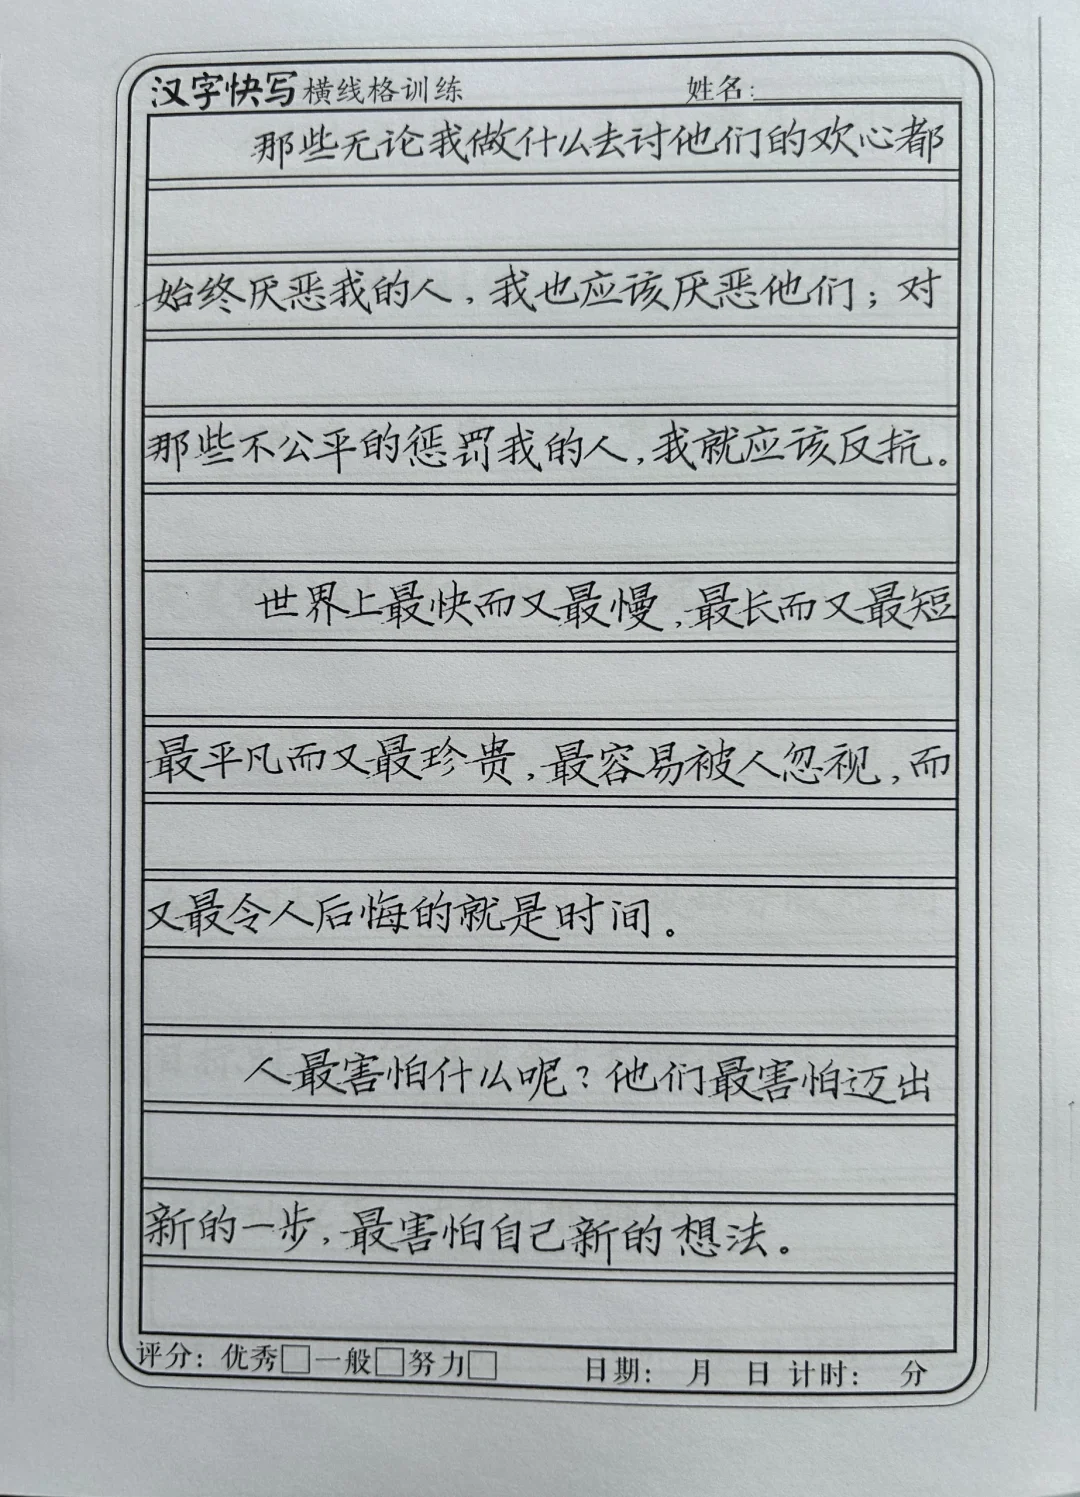 汉字快写横线格训练 姓名:
那些无论我做什么去讨他们的欢心都
始终厌恶我的人，我也应该厌恶他们；对
那些不公平的惩罚我的人，我就应该反抗。
世界上最快而又最慢，最长而又最短
最平凡而又最珍贵，最容易被人忽视，而
又最令人后悔的就是时间。
人最害怕什么呢？他们最害怕迈出
新的一步，最害怕自己新的想法。
评分：优秀□一般□努力□ 日期： 月 日 计时： 分